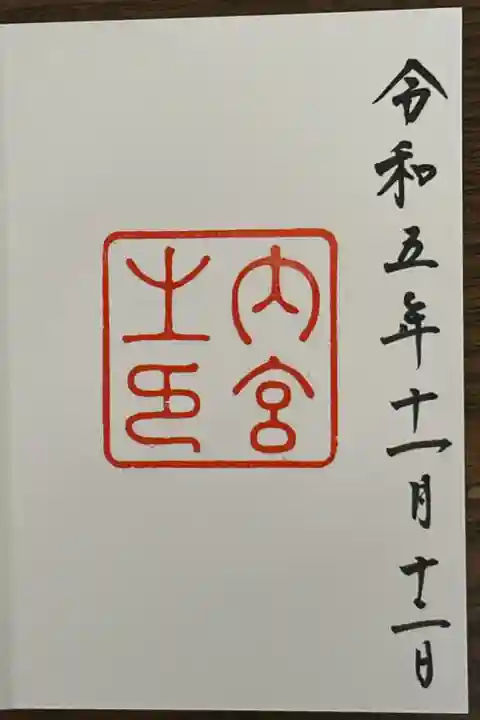 令和五年十一月十二日
内宮
之印